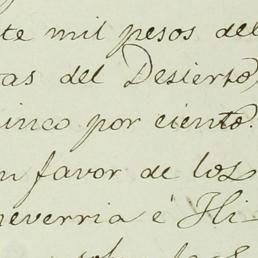 te mil pesos del
tas del Desierto,
inco por ciento.
n favor de los
heverria é Hi-